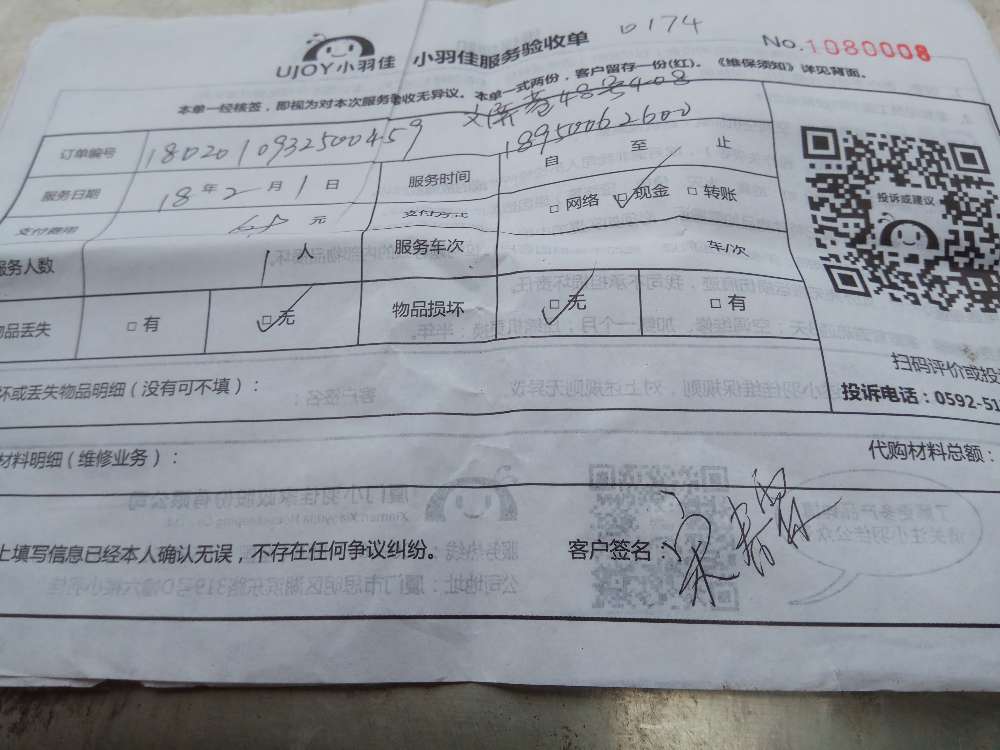 UJOY小羽佳 小羽佳服务验收单 0174 No.1080008
本单一经核签，即视为对本次服务验收无异议。本单一式两份，客户留存一份(红)。《维保须知》详见背面。
48号408
订单编号 1802010932500459 18950062600
服务日期 18年2月1日 服务时间 自 至 止
支付费用 元 支付方式 □网络 □现金 □转账
服务人数 1人 服务车次 车/次
物品丢失 □有 □无 物品损坏 □无 □有
投诉或建议
扫码评价或投
坏或丢失物品明细（没有可不填）：
投诉电话：0592-51
材料明细（维修业务）： 代购材料总额：
上填写信息已经本人确认无误，不存在任何争议纠纷。 客户签名：